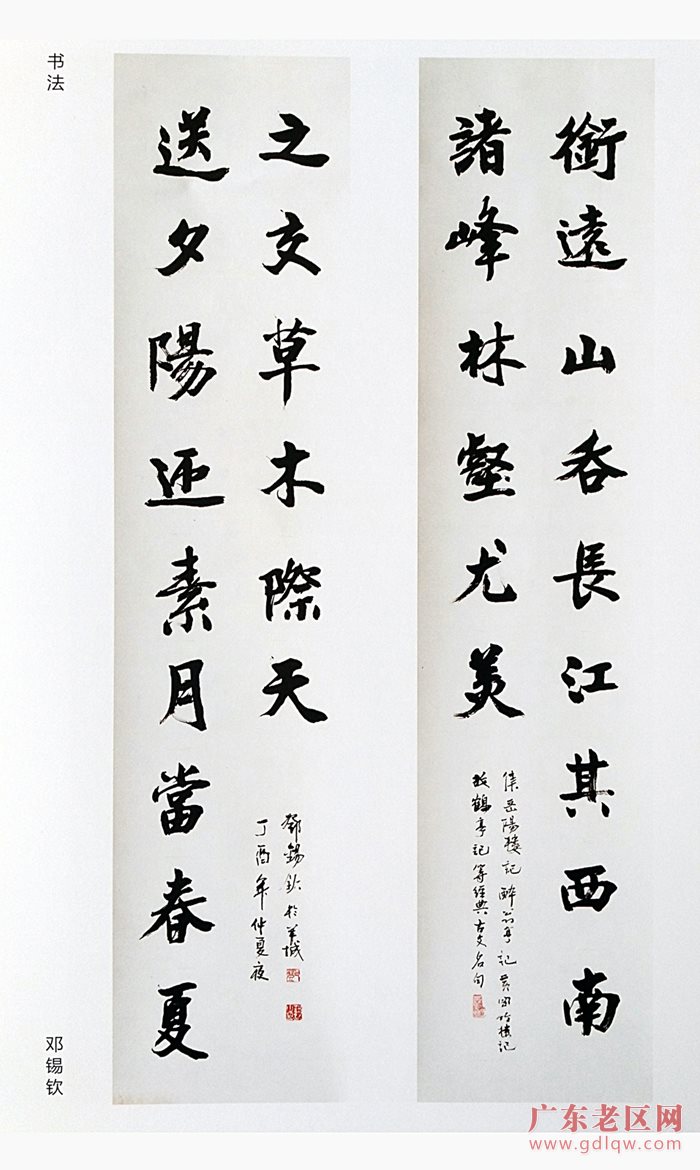 书法
銜遠山吞長江其西南
諸峰林壑尤美
集岳陽樓記醉翁亭記黃岡竹樓記
放鶴亭記等經典古文名句
送夕陽迎素月當春夏
之交草木際天
鄧錫欽於羊城
丁酉年仲夏夜
邓锡钦
广东老区网
www.gdlqw.com